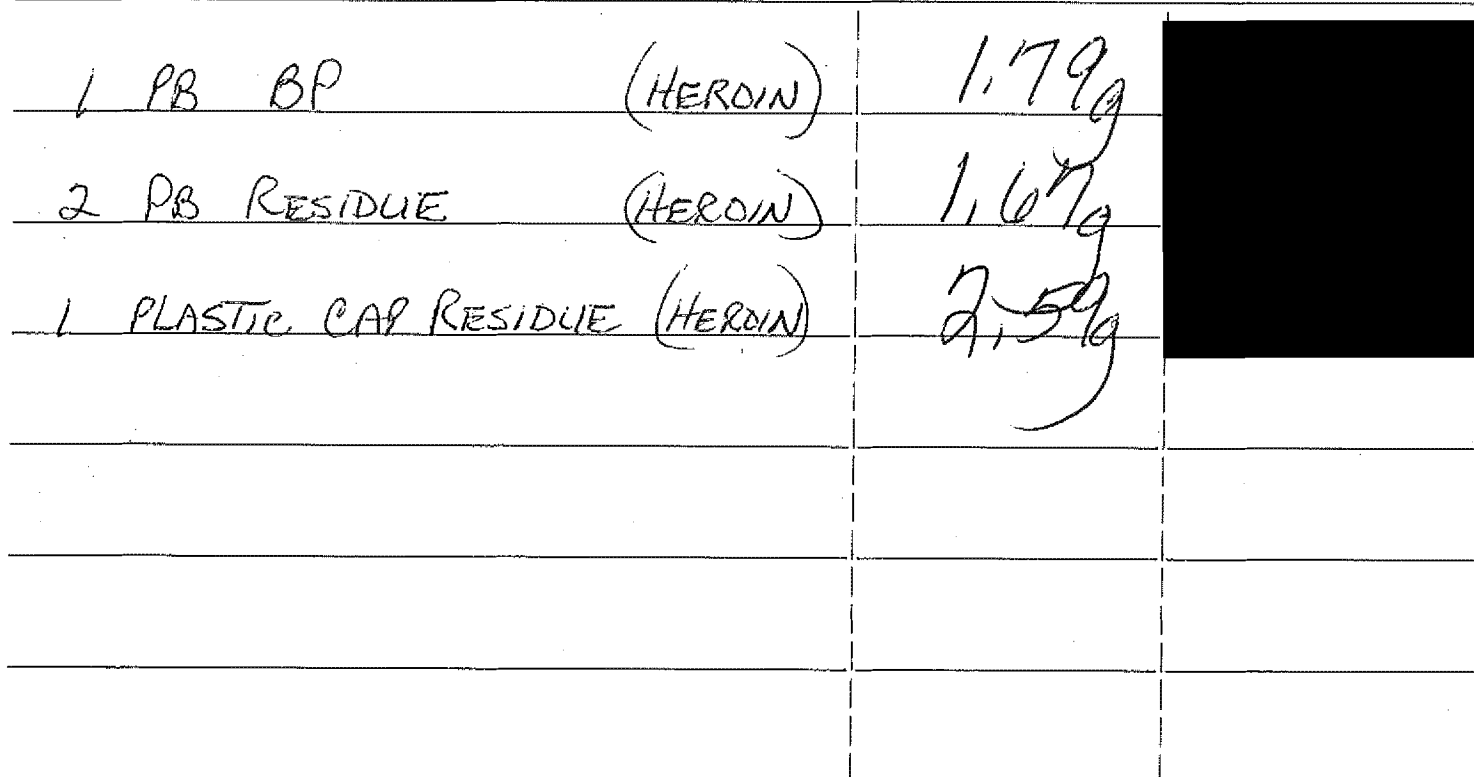 1 PB BP (HEROIN) 1.79g
2 PB RESIDUE (HEROIN) 1.67g
1 PLASTIC CAP RESIDUE (HEROIN) 2.59g